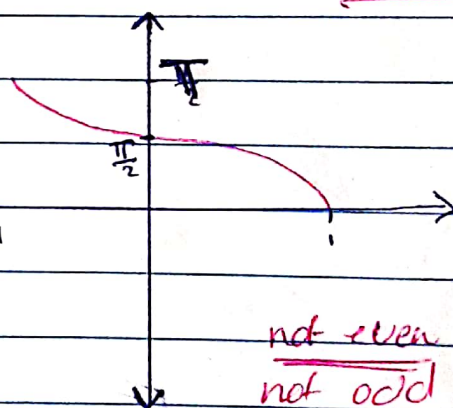 π
π/2
1
not even
not odd